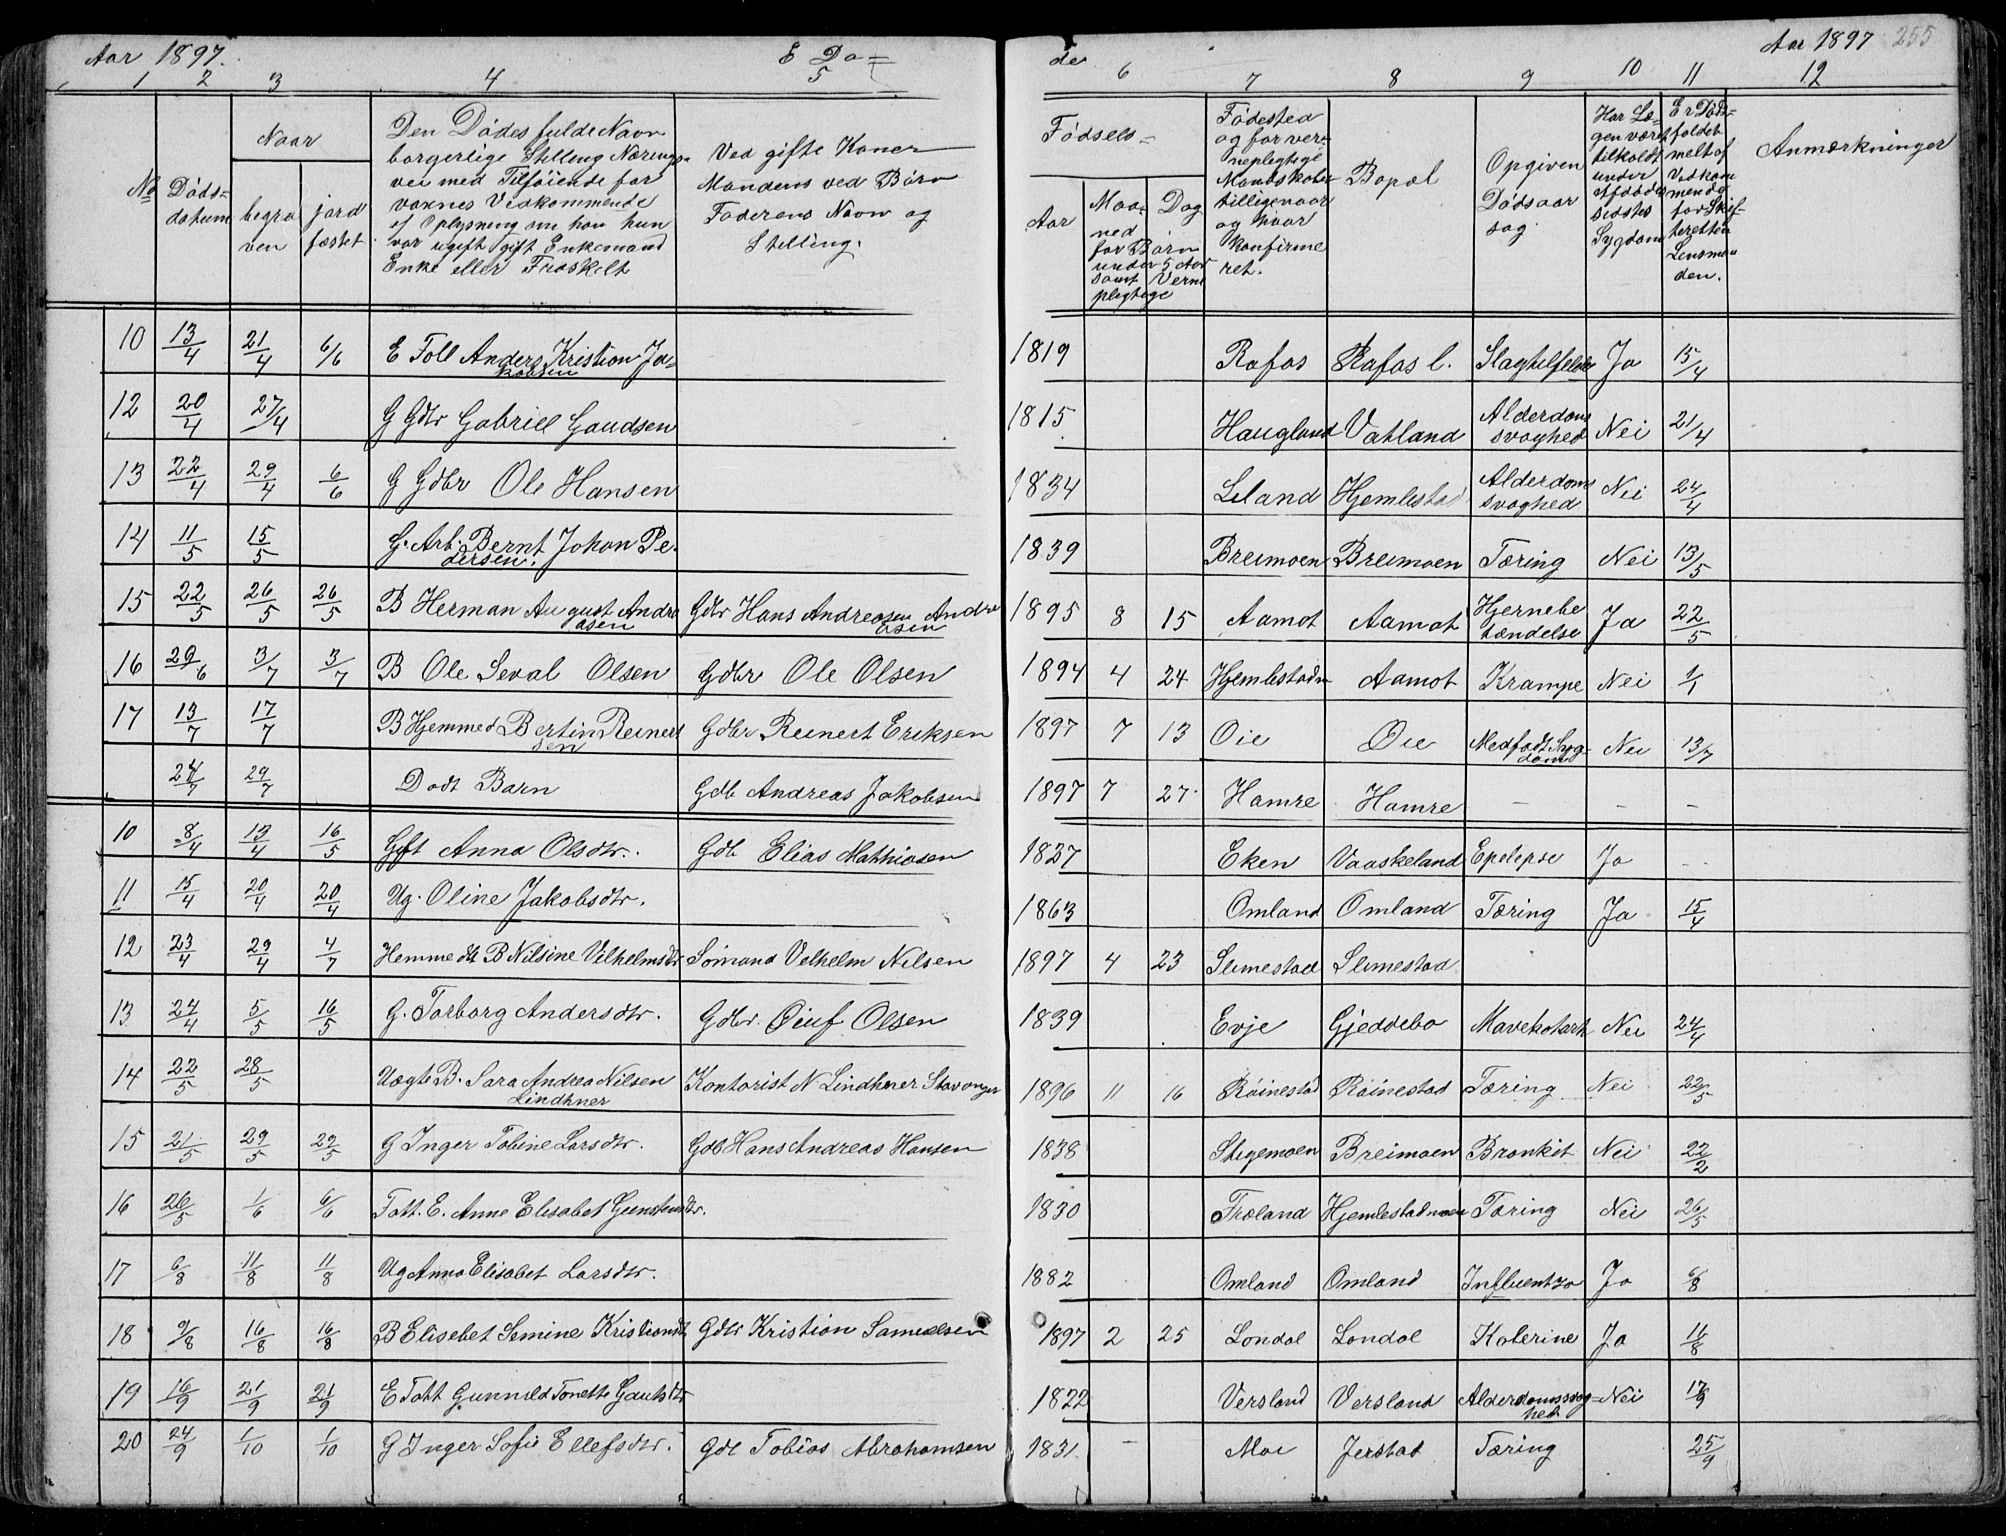 Aar 1897. E Dø= de Aar 1897 255
1 2 3 4 5 6 7 8 9 10 11 12
No
Døds-
datum
Naar
begra
ven
jord
fæstet
Den Dødes fulde Navn
borgerlige Stilling Nærings-
vei med Tilføiende for
voxnes Vedkommende
af Oplysning om han hun
var ugift gift Enkemand
Enke eller Fraskilt
Ved gifte Koner
Mandens ved Børn
Faderens Navn og
Stilling.
Fødsels-
Aar
Maa-
ned
Dag
for Børn
under 5 Aar
samt Verne
plegtige
Fødested
og for ver-
neplegtige
Mandskaber
tilligenaar
og hvor
konfirme
ret.
Bopæl
Opgiven
Dødsaar
sag.
Har Læ-
gen været
tilkaldt
under
Afdødes
sidstes
Sygdom
Er Døds-
faldet
melt af
Vedkom
mende
for Skif-
teretten
Lensman
den.
Anmærkninger
10 13/4 21/4 6/6 E Foll Anders Kristian Ja- 1819 Rafos Rafos l. Slagtilfelde Ja 15/4
kobsen
12 20/4 27/4 G Gdbr Gabriel Gaudsen 1815 Haugland Vatland Alderdoms Nei 21/4
svaghed
13 22/4 29/4 6/6 G Gdbr Ole Hansen 1834 Leland Hjemlestad Alderdoms Nei 24/4
svaghed
14 11/5 15/5 G. Arb. Bernt Johan Pe- 1839 Breimoen Breimoen Tæring Nei 13/5
dersen.
15 22/5 26/5 26/5 B Herman August Andre Gdbr Hans Andreasen Andre 1895 8 15 Aamot Aamot Hjernebe Ja 22/5
asen asen tændelse
16 29/6 3/7 3/7 B Ole Seval Olsen Gdbr Ole Olsen 1894 4 24 Hjemlestadm Aamot Krampe Nei 1/1
17 13/7 17/7 B Hjemmed Bertin Reinert Gdbr Reinert Eriksen 1897 7 13 Øie Øie Medfødt Syg- Nei 13/7
sen dom
27/7 29/7 Dødt Barn Gdb Andreas Jakobsen 1897 7 27 Hamre Hamre - - -
10 8/4 13/4 16/5 Gft Anna Olsdtr. Gdb Elias Mathiasen 1827 Eken Vaaskeland Epelepse Ja --
11 15/4 20/4 20/4 Ug. Oline Jakobsdtr. 1863 Omland Omland Tæring Ja 15/4
12 23/4 29/4 4/7 Hemme dt B Nilsine Vilhelmsdtr Sømand Velhelm Nelsen 1897 4 23 Slimestad Slimestad
13 24/4 5/5 16/5 G. Torborg Andersdtr. Gdbr. Øiuf Olsen 1839 Evje Gjeddebo Mavekatark Nei 24/4
14 22/5 28/5 Uægte B. Sara Andrea Nilsen Kontorist N Lindhner Stavanger 1896 11 16 Røinestad Røinestad Tæring Nei 22/5
Lindhner
15 21/5 29/5 29/5 G Inger Tobine Larsdtr. Gdb Hans Andreas Hansen 1838 Stegemoen Breimoen Bronkit Nei 22/2
16 26/5 1/6 6/6 Fatt. E. Anne Elisabet Gunstensdtr. 1830 Træland Hjemlestadmoen Tæring Nei 26/5
17 6/8 11/8 11/8 Ug Anna Elisabet Larsdtr. 1882 Omland Omland Influentza Ja 6/8
18 9/8 16/8 16/8 B Elisebet Semine Kristiandt Gdbr Kristian Samuelsen 1897 2 25 Londal Londal Katerine Ja 16/8
19 16/9 21/9 21/9 E Fatt Gunnild Tonette Gautsdtr 1822 Versland Versland Alderdomssvag- Nei 17/9
hed
20 24/9 1/10 1/10 G Inger Sofie Ellefsdtr. Gdb Tobias Abrahamsen 1831 - Moi Jerstad Tæring 25/9